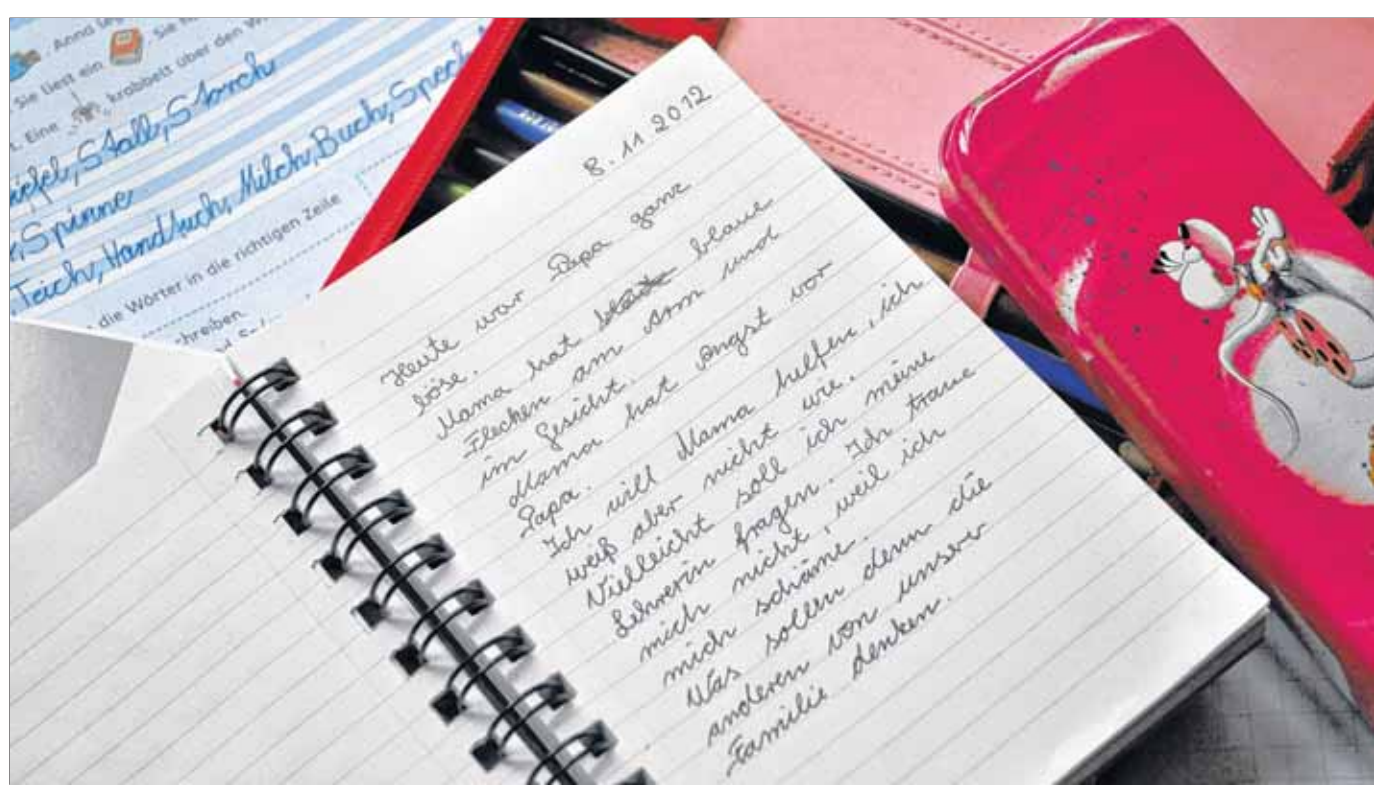 . Anna leg
sie h
Sie liest ein
t. Eine
krabbelt über den W
iefel, Stall, Storch
, Spinne
Teich, Handtuch, Milch, Buch, Speck,
die Wörter in die richtigen Zeile
chreiben.
8.11.2012
Heute war Papa ganz
böse.
Mama hat blaue
Flecken am Arm und
im Gesicht.
Mama hat Angst vor
Papa.
Ich will Mama helfen, ich
weiß aber nicht wie.
Vielleicht soll ich meine
Lehrerin fragen. Ich traue
mich nicht, weil ich
mich schäme.
Was sollen denn die
anderen von unserer
Familie denken.